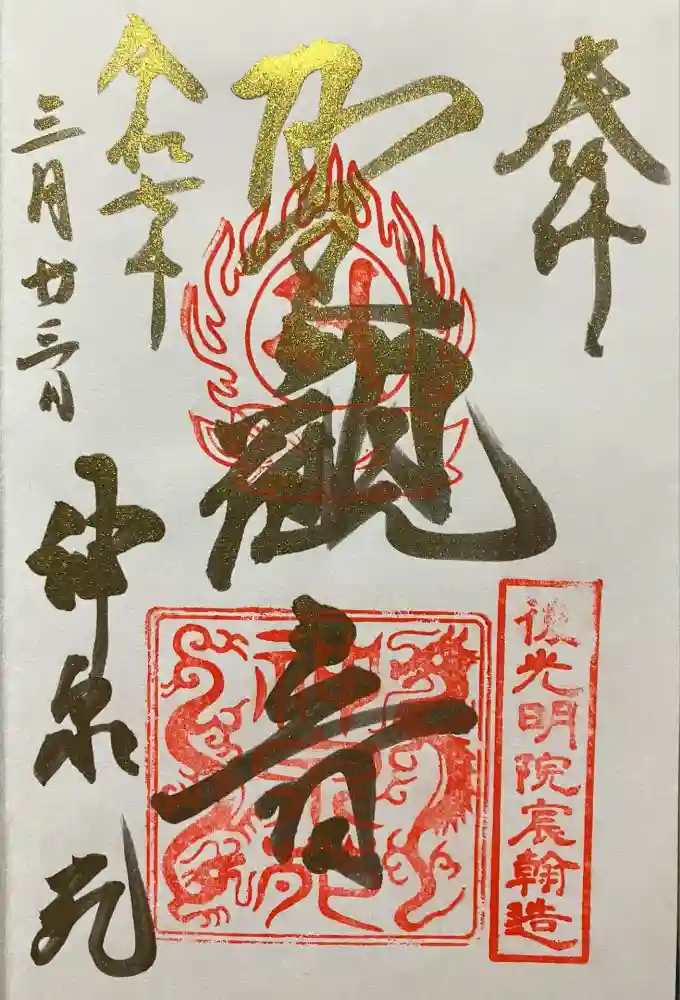 奉拝
後光明院宸翰造
聖観音
令和
年
三月廿三日
神泉苑